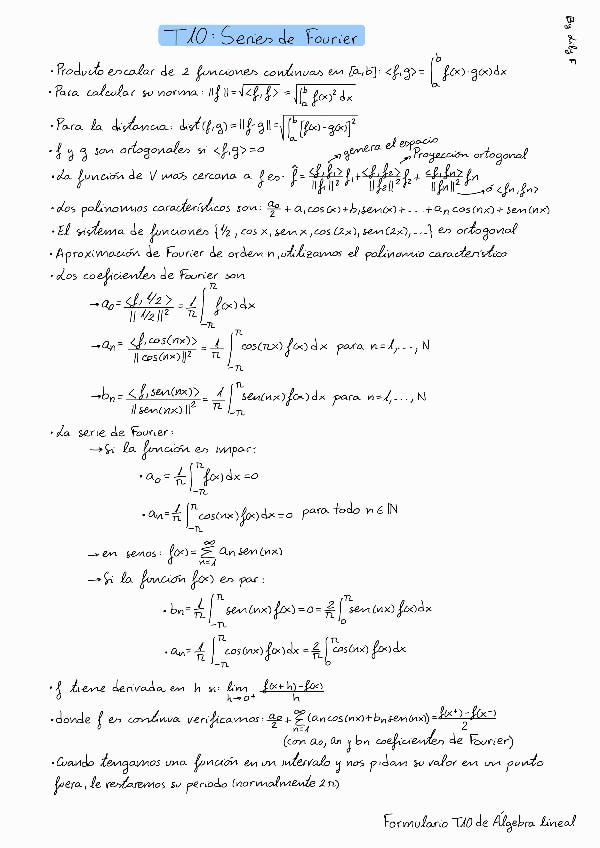 T10: Series de Fourier
By Lily F
· Producto escalar de 2 funciones continuas en [a,b]: <f,g> = ∫_a^b f(x)·g(x)dx
· Para calcular su norma: ||f|| = √<f,f> = √∫_a^b f(x)² dx
· Para la distancia: dist(f,g) = ||f-g|| = √∫_a^b [f(x)-g(x)]²
· f y g son ortogonales si <f,g> = 0
→ genera el espacio
→ Proyección ortogonal
· La función de V mas cercana a f es: f̂ = <f,f₁>/||f₁||² f₁ + <f,f₂>/||f₂||² f₂ + <f,fn>/||fn||² fn
→ ó <fn,fn>
· Los polinomios característicos son: a₀/2 + a₁cos(x)+b₁sen(x)+...+an cos(nx)+sen(nx)
· El sistema de funciones {1/2, cos x, sen x, cos(2x), sen(2x),...} es ortogonal
· Aproximación de Fourier de orden n, utilizamos el polinomio característico
· Los coeficientes de Fourier son
→ a₀ = <f,1/2>/||1/2||² = 1/π ∫_-π^π f(x)dx
→ an = <f,cos(nx)>/||cos(nx)||² = 1/π ∫_-π^π cos(nx) f(x)dx para n=1,..., N
→ bn = <f,sen(nx)>/||sen(nx)||² = 1/π ∫_-π^π sen(nx) f(x)dx para n=1,..., N
· La serie de Fourier:
→ Si la función es impar:
· a₀ = 1/π ∫_-π^π f(x)dx = 0
· an = 1/π ∫_-π^π cos(nx) f(x)dx = 0 para todo n ∈ ℕ
→ en senos: f(x) = ∑_n=1^∞ an sen(nx)
→ Si la función f(x) es par:
· bn = 1/π ∫_-π^π sen(nx) f(x) = 0 = 2/π ∫_0^π sen(nx) f(x)dx
· an = 1/π ∫_-π^π cos(nx) f(x)dx = 2/π ∫_0^π cos(nx) f(x)dx
· f tiene derivada en h si: lim_h→0⁺ f(x+h)-f(x)/h
· donde f es continua verificamos: a₀/2 + ∑_n=1^∞ (an cos(nx)+bn sen(nx)) = f(x⁺)-f(x⁻)/2
(con a₀, an y bn coeficientes de Fourier)
· Cuando tengamos una función en un intervalo y nos pidan su valor en un punto
fuera, le restaremos su periodo (normalmente 2π)
Formulario T10 de Álgebra lineal